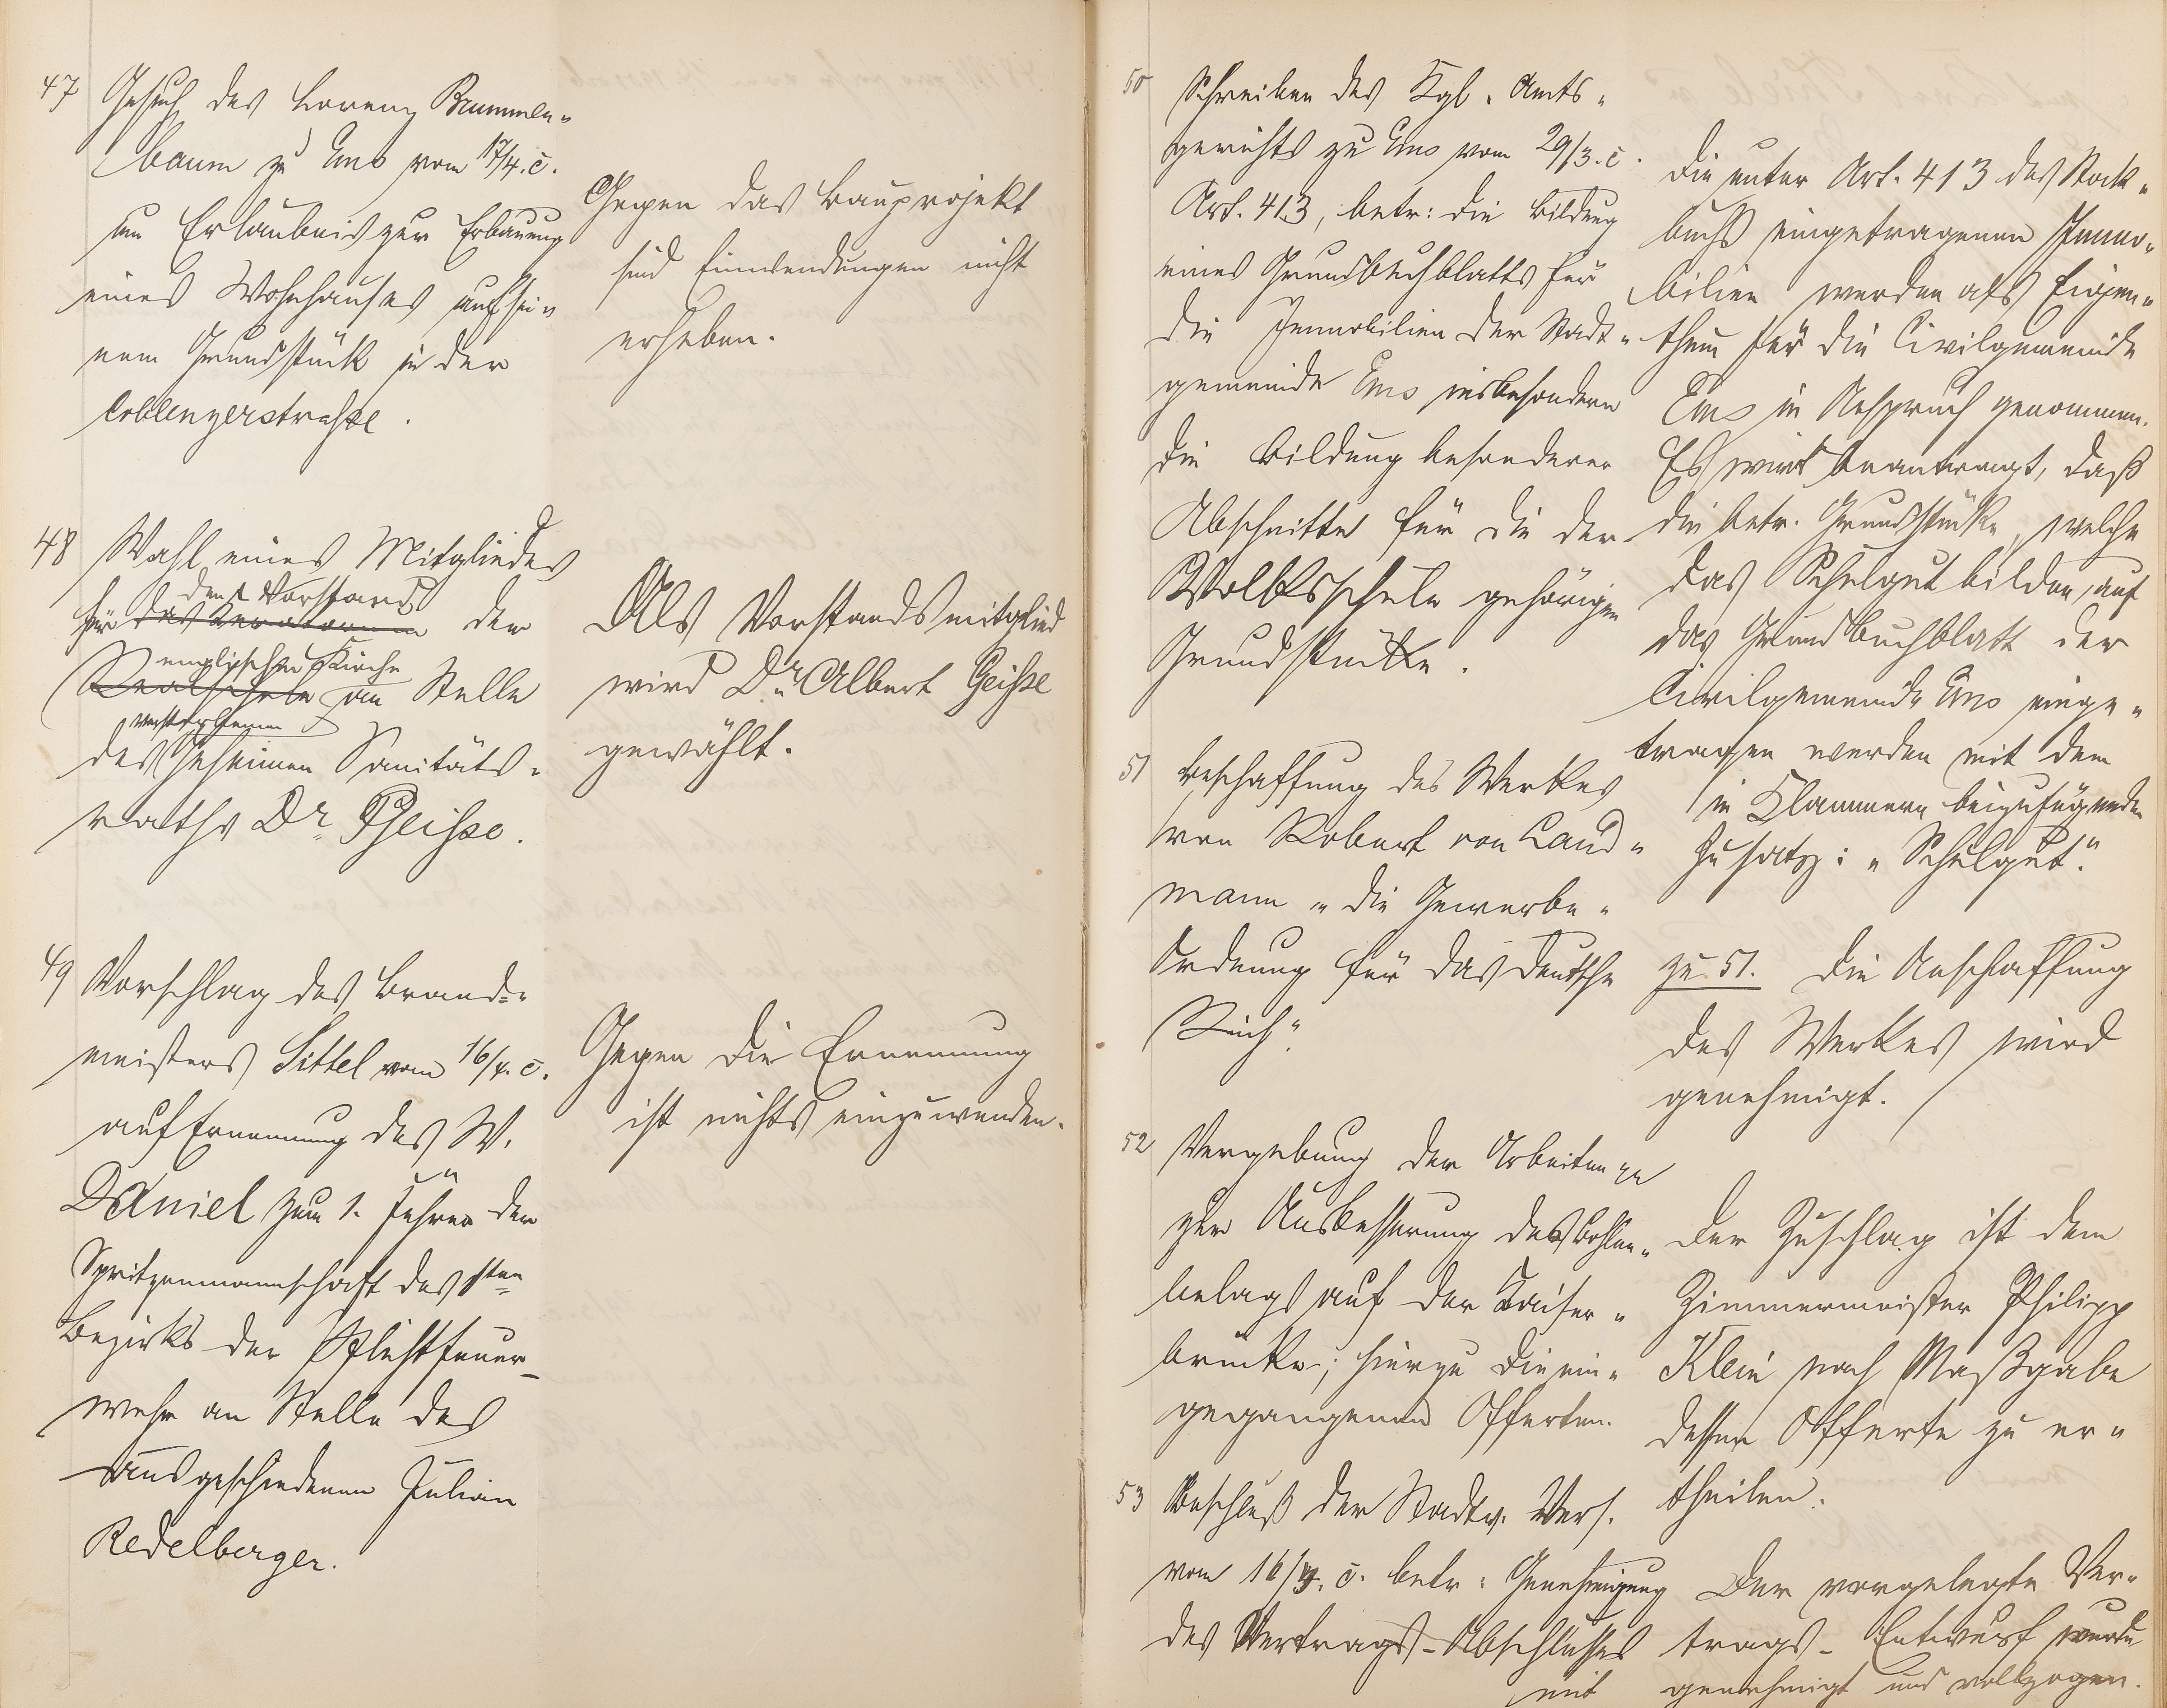 47 Gesuch des Lorenz Brummen-
baum zu Ems vom 17/4. c.
um Erlaubnis zur Erbauung
eines Wohnhauses auf sei-
nem Grundstück in der
Coblenzerstraße.
Gegen das Bauprojekt
sind Einwendungen nicht
erheben.
48 Wahl eines Mitgliedes
den Vorstand
für das Kuratorium der
englischen Kirche
Realschule an Stelle
verstorbenen
des Geheimen Sanitäts-
raths Dr. Geisse.
Als Vorstandsmitglied
wird Dr. Albert Geisse
gewählt.
49 Vorschlag des Brand-
meisters Sittel vom 16/4. c.
auf Ernennung des W.
Daniel zum 1. Führer der
Spritzenmannschaft des 1ten
Bezirks der Pflichtfeuer-
wehr an Stelle des
ausgeschiedenen Julian
Redelberger.
Gegen die Ernennung
ist nichts einzuwenden.
50 Schreiben des Kgl. Amts-
gerichts zu Ems vom 29/3. c.
Art. 413, betr: die Bildung
eines Grundbuchblatts für
die Immobilien der Stadt-
gemeinde Ems insbesondere
die Bildung besonderer
Abschnitte für die der
Volksschule gehörigen
Grundstücke.
Die unter Art. 413 des Stock-
buchs eingetragenen Immo-
bilien werden als Eigen-
thum für die Civilgemeinde
Ems in Anspruch genommen.
Es wird beantragt, daß
die betr. Grundstücke, welche
das Schulgut bilden, auf
das Grundbuchblatt der
Civilgemeinde Ems einge-
tragen werden mit dem
in Klammern beizufügenden
Zusatz: "Schulgut."
51 Beschaffung des Werkes
von Robert von Land-
mann "die Gewerbe-
Ordnung für das Deutsche
Reich".
zu 51. Die Anschaffung
des Werkes wird
genehmigt.
52 Vergebung der Arbeiten
zur Ausbesserung des Bohlen-
belags auf der Kaiser-
brücke; hierzu die ein-
gegangenen Offerten.
Der Zuschlag ist dem
Zimmermeister Philipp
Klein nach Maßgabe
dessen Offerte zu er-
theilen.
53 Beschluß der Stadtv. Vers.
vom 16/4. c. betr: Genehmigung
des Vertrags-Abschlusses
mit
Der vorgelegte Ver-
trags-Entwurf wurde
genehmigt und vollzogen.